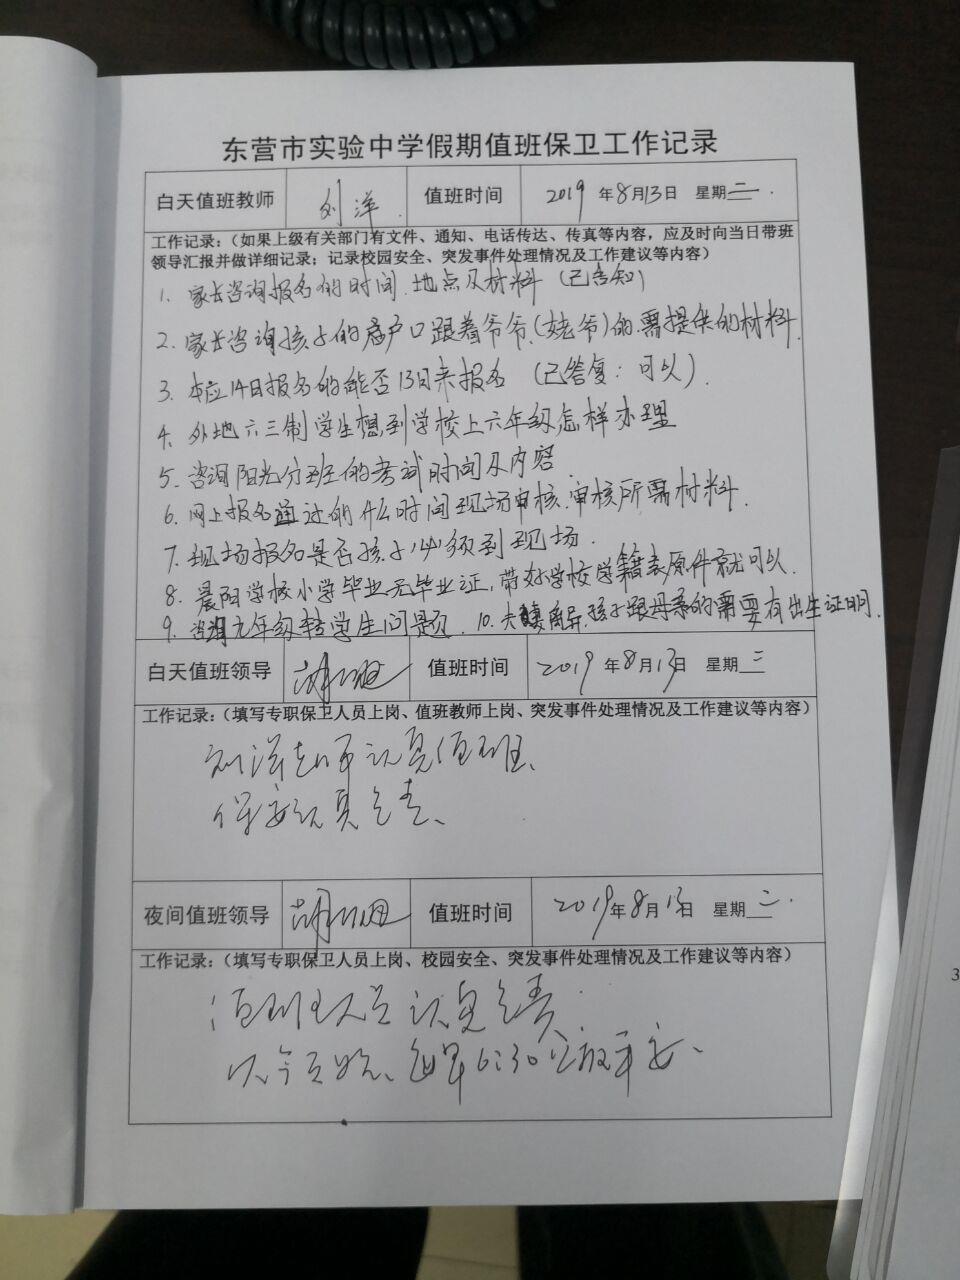 东营市实验中学假期值班保卫工作记录
白天值班教师 刘洋 值班时间 2019年8月13日 星期二
工作记录：（如果上级有关部门有文件、通知、电话传达、传真等内容，应及时向当日带班
领导汇报并做详细记录；记录校园安全、突发事件处理情况及工作建议等内容）
1. 家长咨询报名的时间、地点及材料（已告知）
2. 家长咨询孩子的户口跟着爷爷、（姥爷）的需提供的材料.
3. 本应14日报名的能否13日来报名（已答复：可以）.
4. 外地六三制学生想到学校上六年级怎样办理
5. 咨询阳光分班的考试时间及内容
6. 网上报名通过的什么时间现场审核.审核所需材料.
7. 现场报名是否孩子必须到现场.
8. 晨阳学校小学毕业无毕业证,带好学校学籍表原件就可以.
9. 咨询九年级转学生问题. 10. 夫妻离异,孩子跟母亲的需要有出生证明.
白天值班领导 值班时间 2019年8月13日 星期二
工作记录：（填写专职保卫人员上岗、值班教师上岗、突发事件处理情况及工作建议等内容）
刘洋老师认真值班、
保安认真负责、
夜间值班领导 值班时间 2019年8月13日 星期二.
工作记录：（填写专职保卫人员上岗、校园安全、突发事件处理情况及工作建议等内容）
值班人员认真负责.
从今天始、每早6:30
3